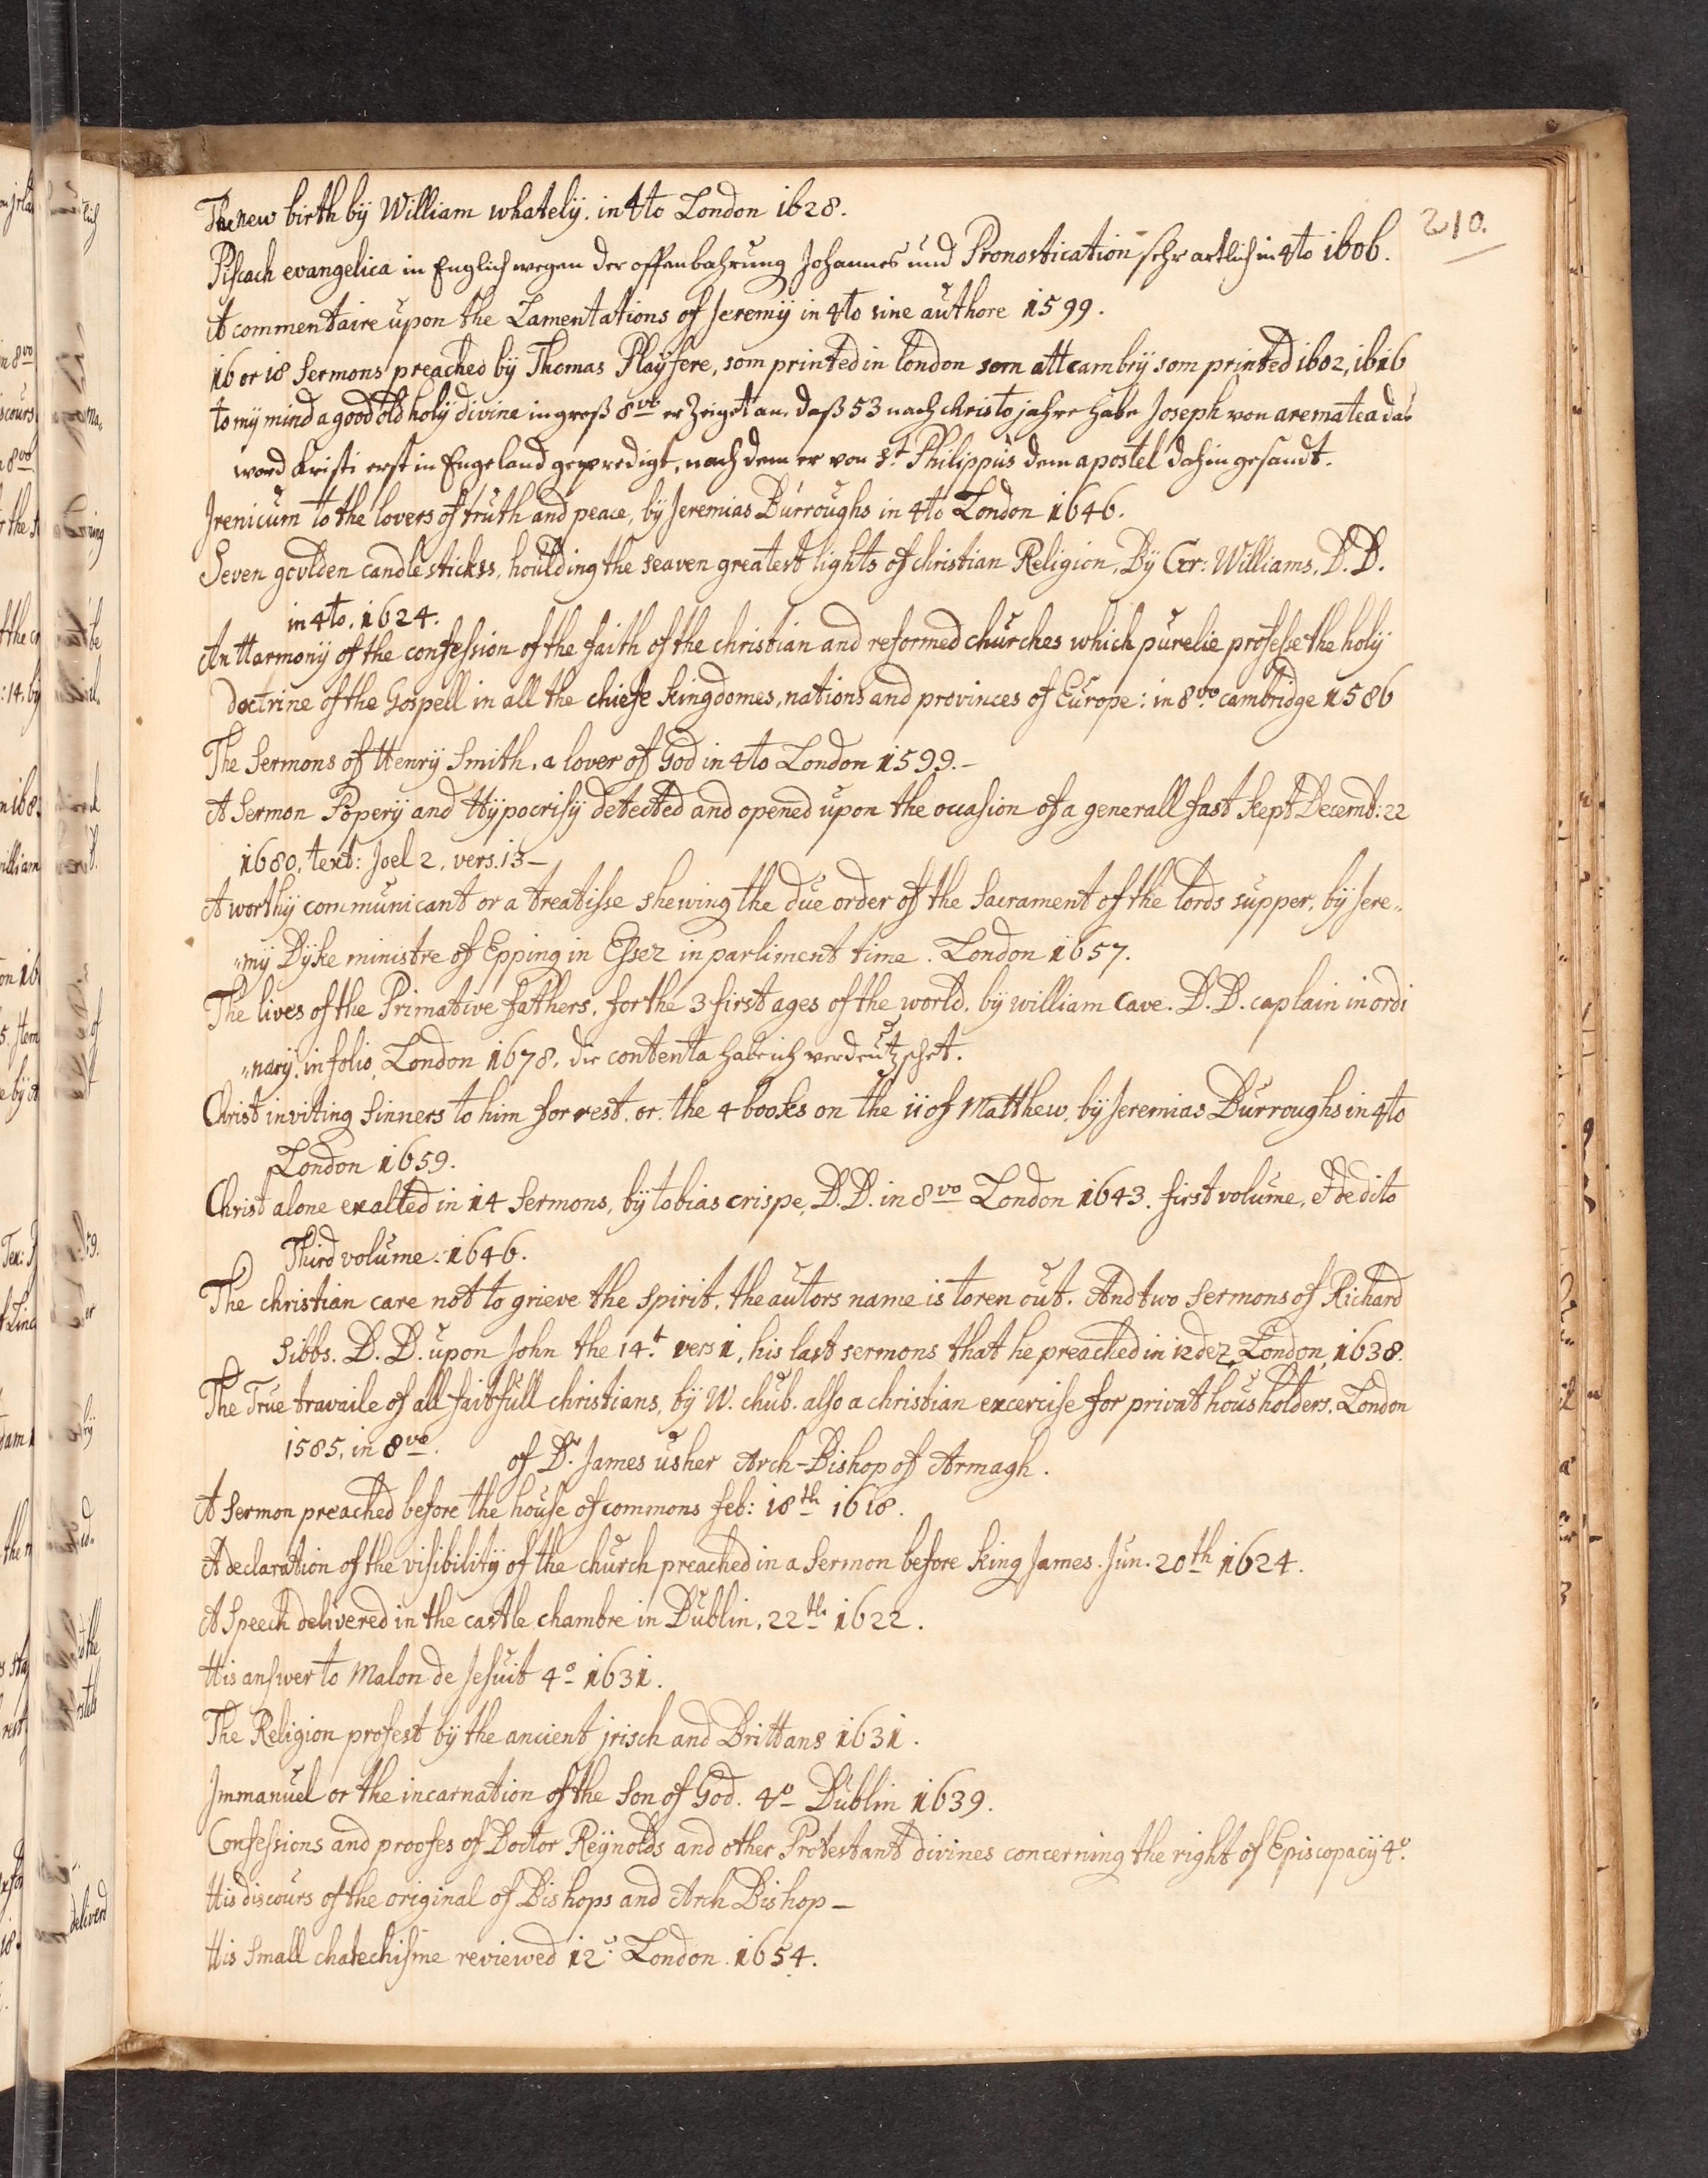 210.
The new birth by William whately. in 4to London 1628.
Piscach evangelica in Englisch wegen der offenbahrung Johannes und Pronostication sehr artlich in 4to 1606.
A commentaire upon the Lamentations of Jeremy in 4to sine authore 1599.
16 or 18 Sermons preached by Thomas Playfere, som printed in london som att cambry som printed 1602, 1616
to my mind a good old holy divine in groß 8vo er Zeiget an daß 53 nach Christo jahre habe Joseph von arematea das
word Kristi erst in Engeland gepredigt, nach dem er von St Philippus dem apostel dahin gesandt.
Jrenicum to the lovers of truth and peace, by Jeremias Burroughs in 4to London 1646.
Seven goulden candlestickss, houlding the seaven greatest lights of christian Religion, By Gr: Williams, D.D.
in 4to. 1624.
An Harmony of the confession of the faith of the christian and reformed churches which purelie professe the holy
doctrine of the Gospell in all the chiefe kingdomes, nations and provinces of Europe: in 8vo cambridge 1586
The Sermons of Henry Smith, a lover of God in 4to London 1599.-
A Sermon Popery and Hypocrisy detected and opened upon the occasion of a generall fast kept Decemb: 22
1680, text: Joel 2, vers. 13-
A worthy communicant or a treatisse shewing the due order of the Sacrament of the lords supper, by Jere„
„my Dyke ministre of Epping in Essez in parliment time. London 1657.
The lives of the Primative fathers, for the 3 first ages of the world, by william Cave. D.D. caplain in ordi
„nary. in folio, London 1678. die contenta habe ich verdeutzschet.
Christ inviting Sinners to him for rest. or. the 4 books on the 11 of Matthew, by Jeremias Burroughs in 4to
London 1659.
Christ alone exalted in 14 Sermons, by tobias crispe, D.D. in 8vo London 1643. first volume, & de dito
Third volume. 1646.
The christian care not to grieve the spirit, the autors name is toren out. And two Sermons of Richard
Sibbs. D.D. upon John the 14.t vers 1, his last sermons that he preached in 12dez London, 1638.
The True travaile of all faitfull christians, by W. chub. also a christian excercise for privat housholders, London
1585, in 8vo.
of Dr. James usher Arch-Bishop of Armagh.
A Sermon preached before the house of commons feb: 18th 1618.
A declaration of the visibility of the church preached in a Sermon before king James. Jun. 20th 1624.
A Speech delivered in the castle chambre in Dublin, 22th 1622.
His answer to Malon de Jesuit 4o 1631.
The Religion profest by the ancient jrisch and Brittans 1631.
Jmmanuel or the incarnation of the Son of God. 4o Dublin 1639.
Confessions and proofes of Doctor Reynolds and other Protestant divines concerning the right of Episcopacy 4o.
His discours of the original of Bishops and Arch Bishop-
His Small chatechisme reviewed 12o: London. 1654.